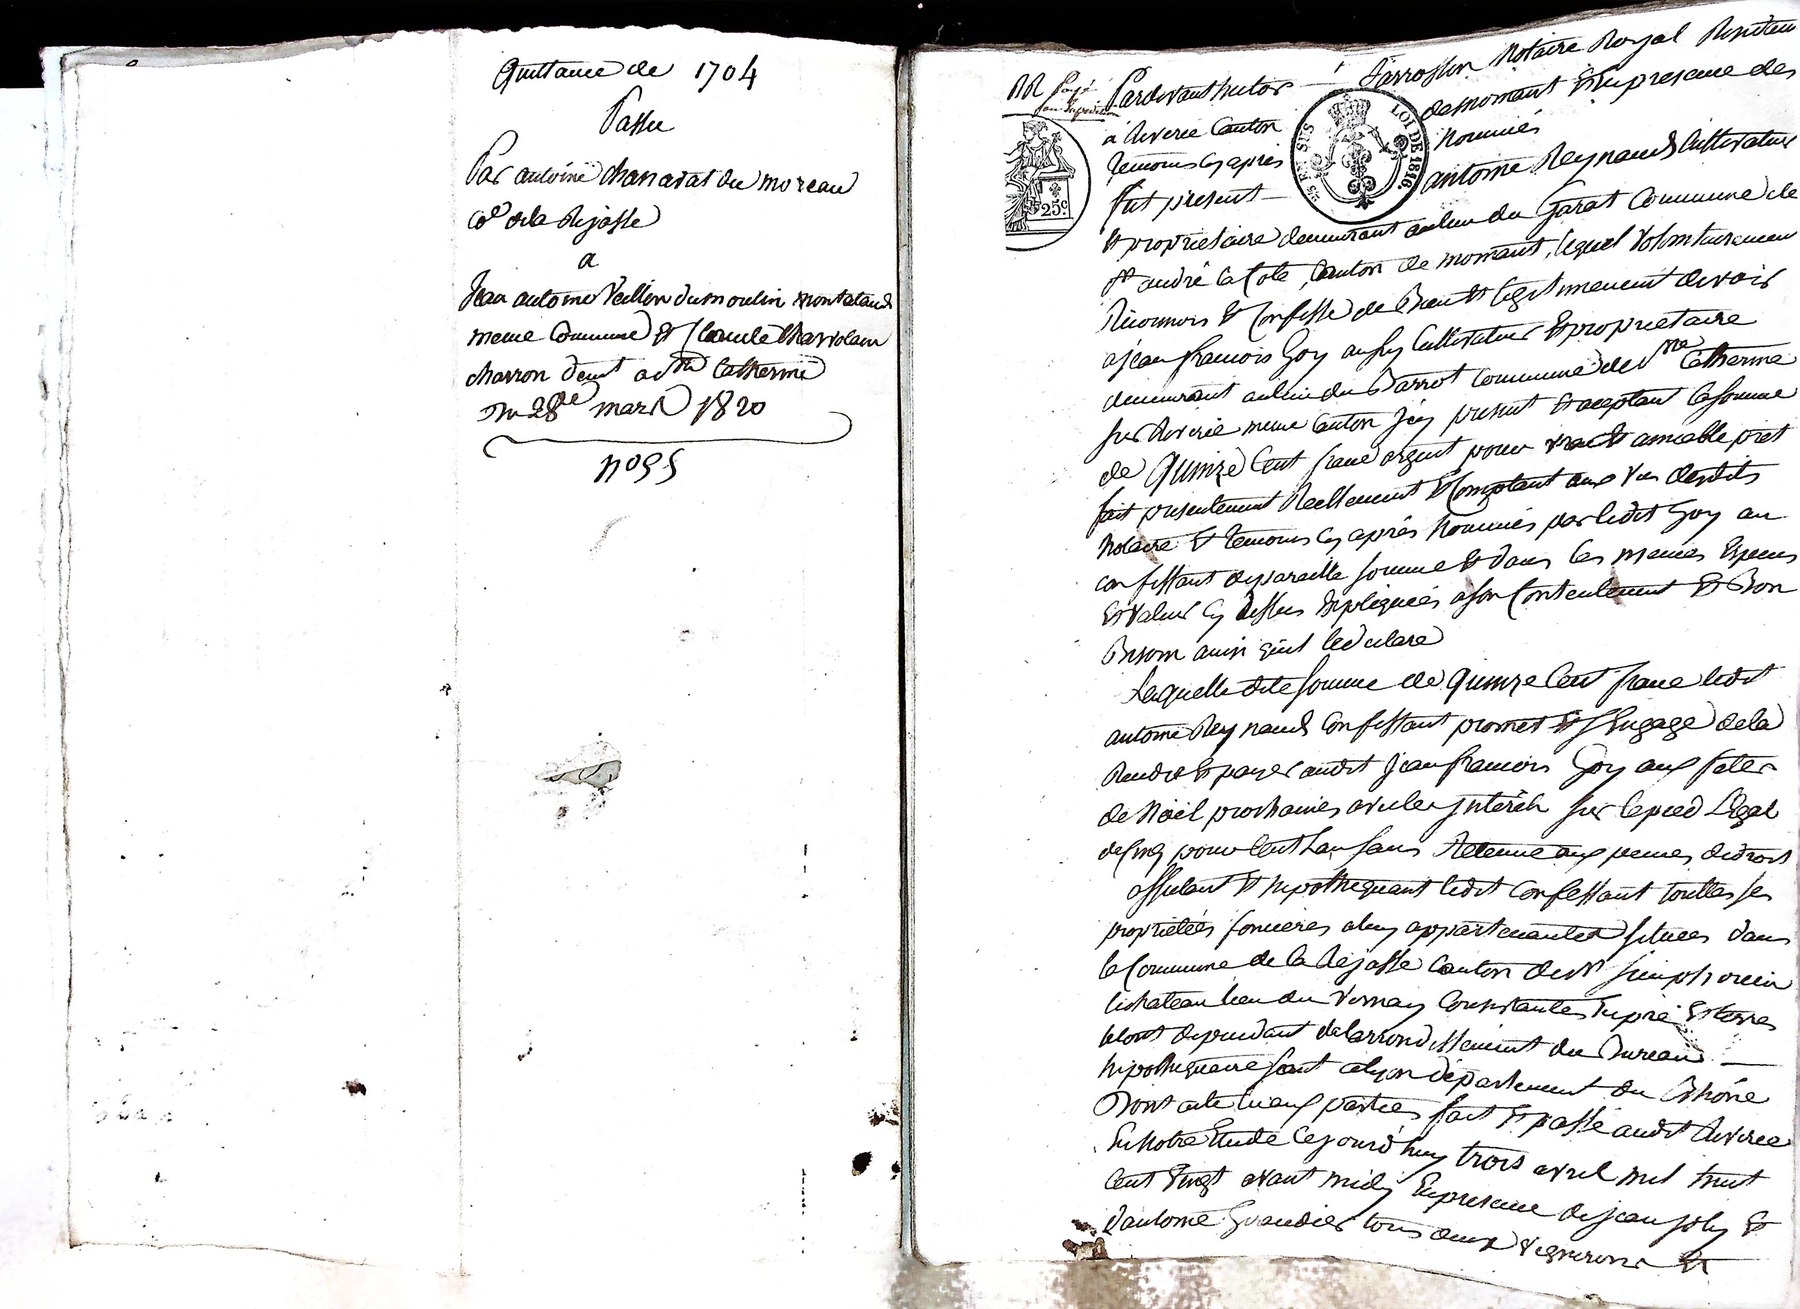 Quittance de 1704
Passée
Par antoine chanavat du moreau
Cne de la Rejasse
a
Jean antoine Veillon du moulin montataud
meme Commune Et Claude Charvolein
charron demt a Ste Catherine
Du 28e mars 1820
n° 95
RR Payé
Pardevant Me Victor — Farrossin Notaire Royal Resident
à Riverie Canton de mornant Et En presence des
temoins Cy après nommés
fut present — antoine Reynaud Cultivateur
LOI DE 1816
25 EN SUS
25c
Et proprietaire demeurant au lieu du Garat Commune de
St andré la Cote, Canton de mornant, lequel Volontairement
Reconnois Et Confesse de Bien Et legitimement devoir
a jean françois Goy aussy Cultivateur Et proprietaire
demeurant au lieu du Barrot Commune de Ste Catherine
sur Riverie meme Canton Jcy present Et aceptant la somme
de Quinze Cent franc argent pour vrai Et amiable pret
fait presentement Reellement Et Comptant aux vus desdits
Notaire Et temoins Cy après Nommés par ledit Goy au
confessant de pareille somme Et dans les memes Especes
Et Valeur Cy dessus Expliquées a son Contentement Et Bon
Besoin ainsi qu'il le déclare
Laquelle dite somme de Quinze Cent franc ledit
antoine Reynaud Confessant promet Et s'Engage de la
Rendre Et payer audit Jean françois Goy aux fetes
de Noël prochaines avec les jnterêts sur le pied Légal
de Cinq pour Cent L'an sans Retenue aux peines de droit
affectant Et hipothequant ledit Confessant toutes ses
proprietées foncieres a luy appartenantes situées dans
la Commune de la Rejasse Canton de St simphorien
le chateau lieu du Vernay Consistantes En pré Et terres
le tout dependant de l'arrondissement du Bureau —
hipothequaire seant a Lyon département du Rhône
Dont acte lu aux parties fait Et passé audit Riverie
En Notre Etude Cejourd'huy trois avril mil huit
Cent Vingt avant midy En presence de jean joly Et
d'antoine Guandier tous deux Vignerons Et